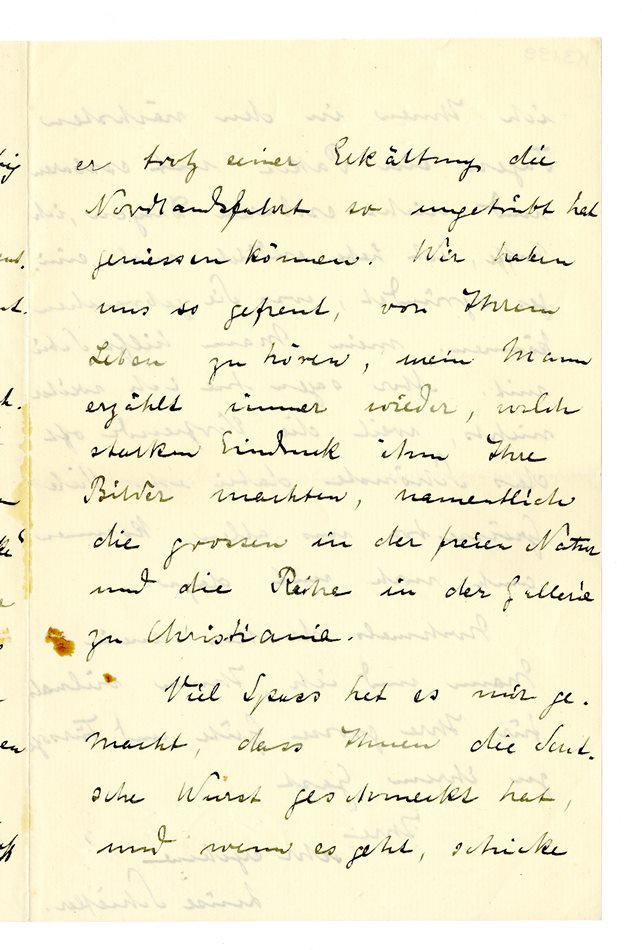 er trotz einer Erkältung die
Nordlandsfahrt so ungetrübt hat
geniessen können. Wir haben
uns so gefreut, von Ihrem
Leben zu hören, mein Mann
erzählt immer wieder, welch
starken Eindruck ihm Ihre
Bilder machten, namentlich
die grossen in der freien Natur
und die Reihe in der Gallerie
zu Christiania.
Viel Spass hat es mir ge-
macht, dass Ihnen die Deut-
sche Wurst geschmeckt hat,
und wenn es geht, schicke